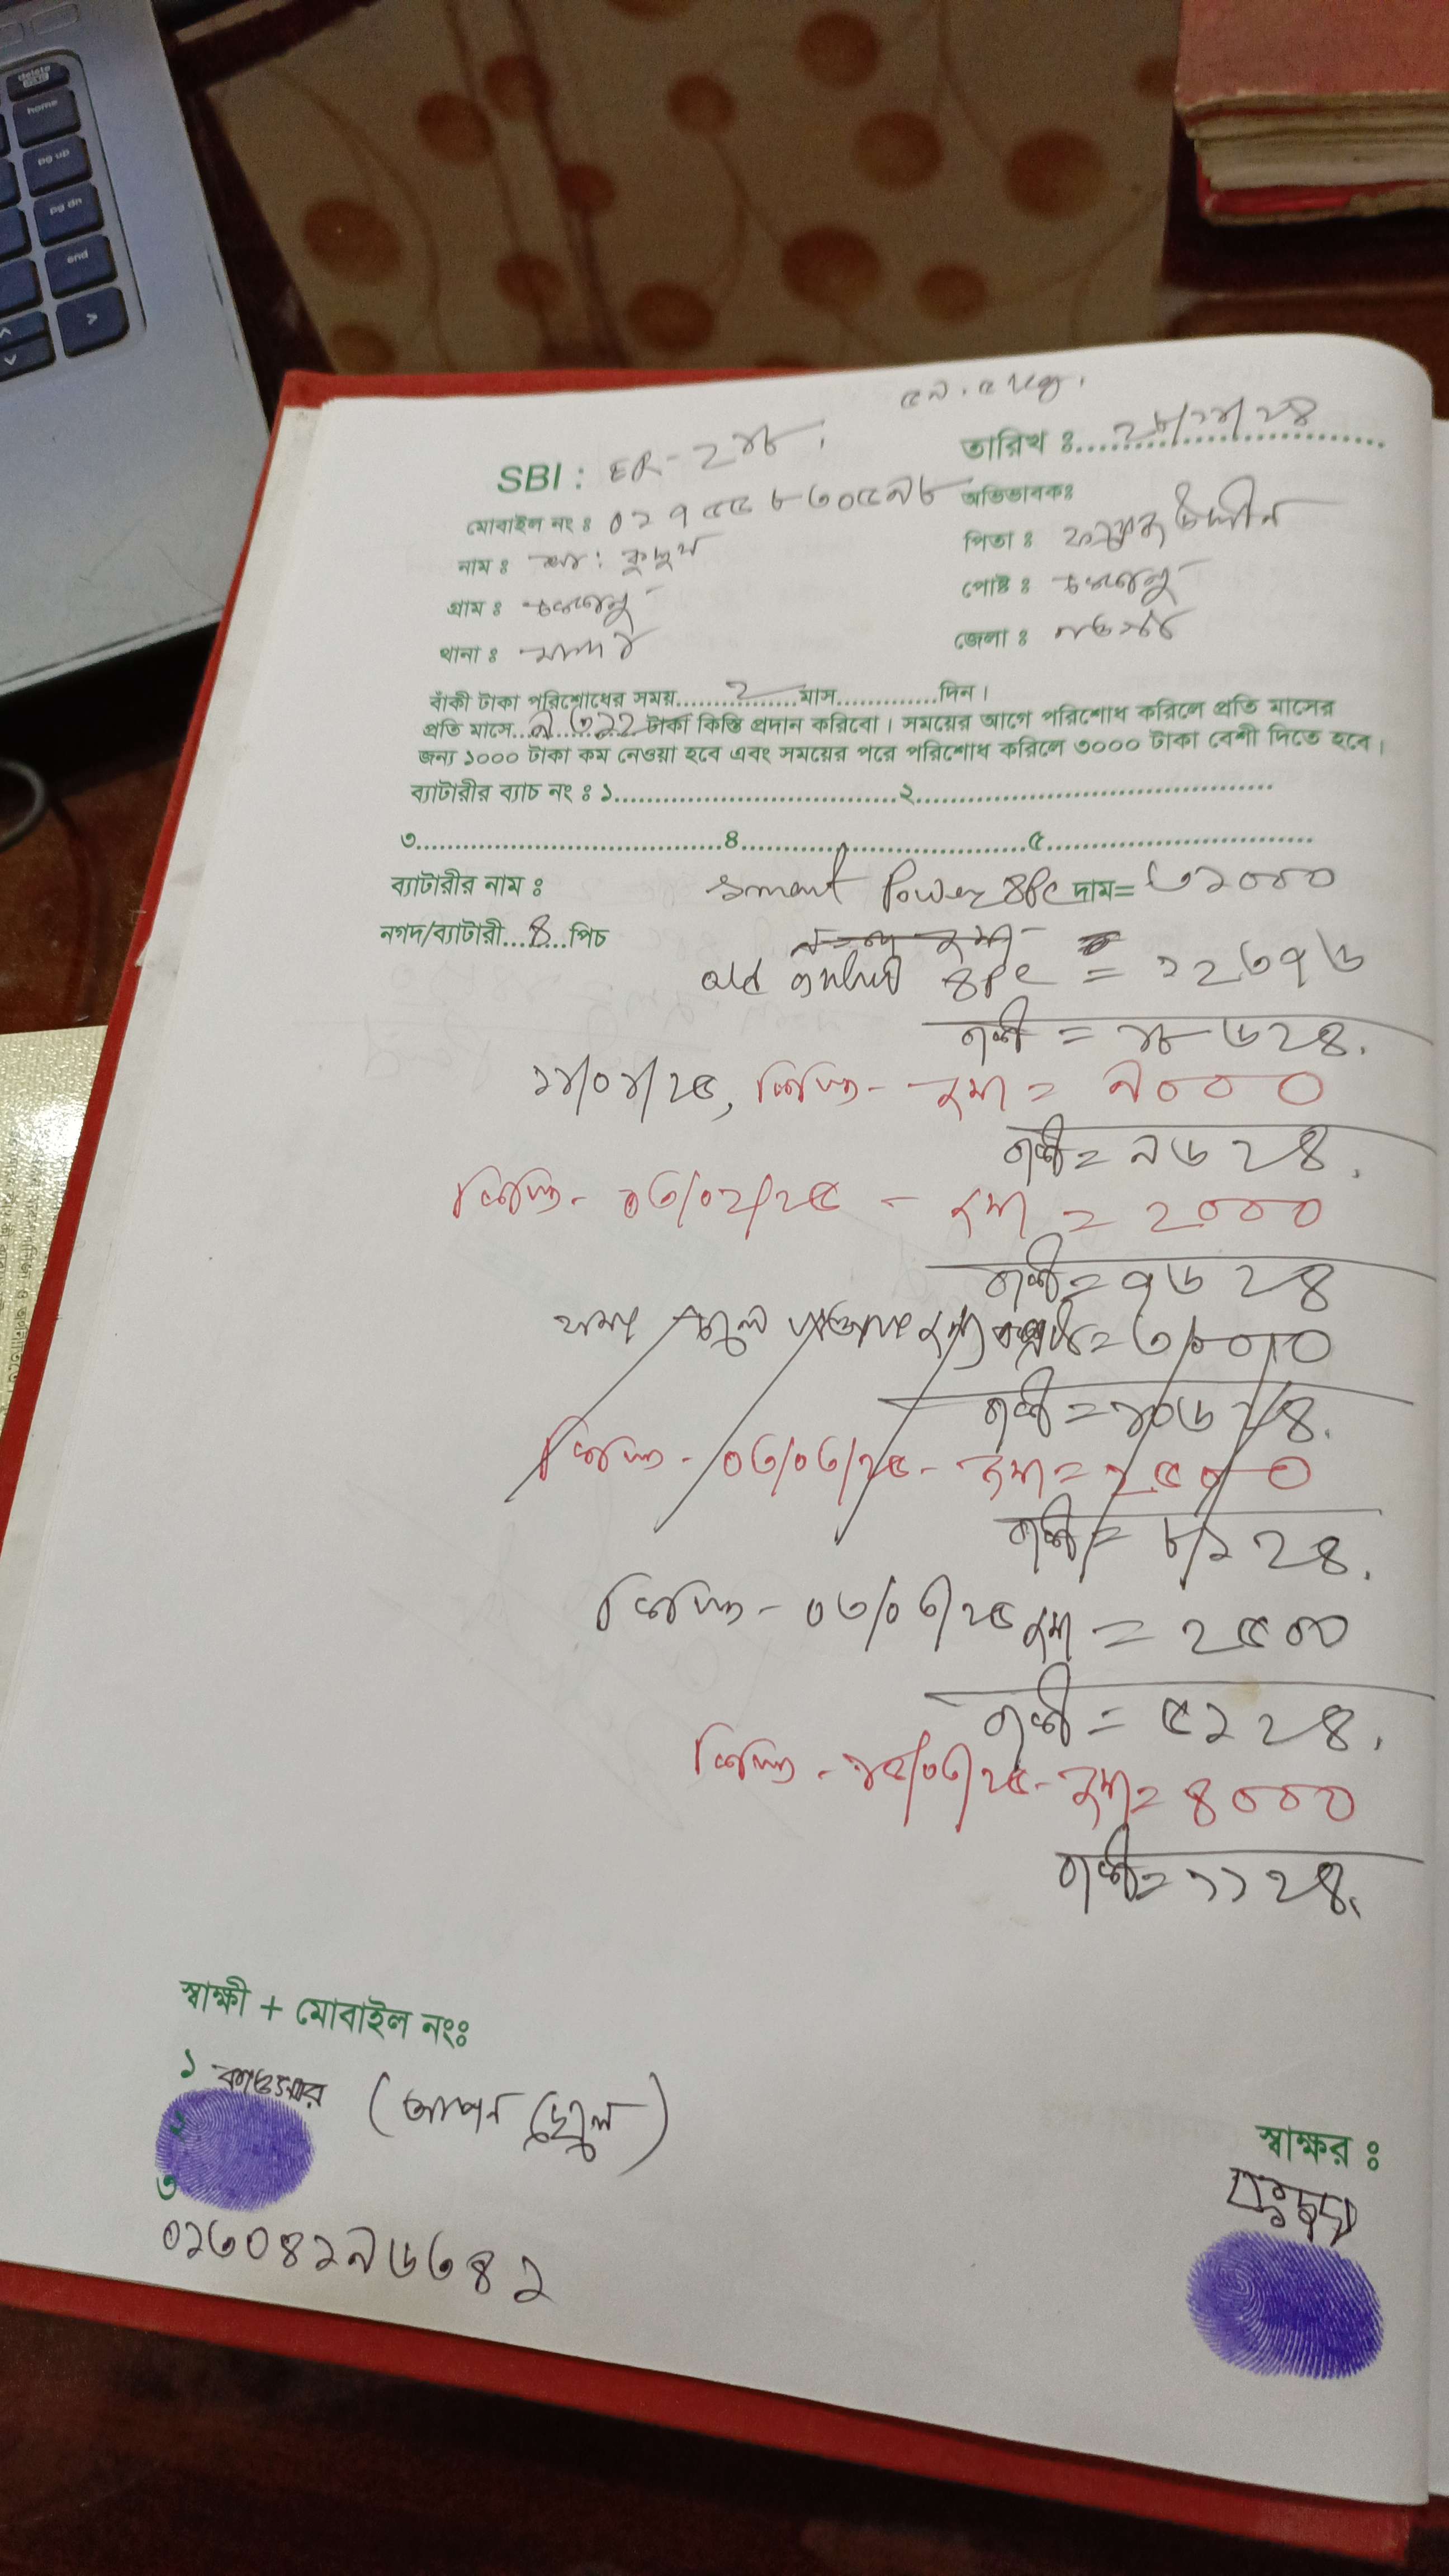 delete
home
pg up
pg dn
end
SBI : ER-২১৮
তারিখ ঃ ২৮/১১/২৪
মোবাইল নং ঃ
অভিভাবকঃ
নাম ঃ মোঃ কুদ্দুস
পিতা ঃ
গ্রাম ঃ
পোষ্ট ঃ
থানা ঃ মান্দা
জেলা ঃ নওগাঁ
বাঁকী টাকা পরিশোধের সময়........২........মাস.............দিন।
প্রতি মাসে...৯৩১২...টাকা কিস্তি প্রদান করিবো। সময়ের আগে পরিশোধ করিলে প্রতি মাসের
জন্য ১০০০ টাকা কম নেওয়া হবে এবং সময়ের পরে পরিশোধ করিলে ৩০০০ টাকা বেশী দিতে হবে।
ব্যাটারীর ব্যাচ নং ঃ ১...............................২.......................................
৩...................................৪................................৫..............................
ব্যাটারীর নাম ঃ Smart Power ৪Pc দাম= ৩১০০০
নগদ/ব্যাটারী...৪...পিচ
old ৪Pc = ১২৩৭৬
বাকী = ১৮৬২৪.
১১/০১/২৫, কিস্তি - জমা = ৯০০০
বাকী = ৯৬২৪.
কিস্তি - ১৩/০২/২৫ - জমা = ২০০০
বাকী = ৭৬২৪
= ৩০০০
বাকী = ১০৬২৪.
কিস্তি - ০৩/০৩/২৫ - জমা = ২৫০০
বাকী = ৮১২৪.
কিস্তি - ০৩/০৩/২৫ জমা = ২৫০০
বাকী = ৫১২৪.
কিস্তি - ১৫/০৩/২৫ - জমা = ৪০০০
বাকী = ১১২৪.
স্বাক্ষী + মোবাইল নংঃ
১ কাওসার (আপন ছেলে)
২
৩
০১৩০৪১৯৬৩৪১
স্বাক্ষর ঃ
কুদ্দুস